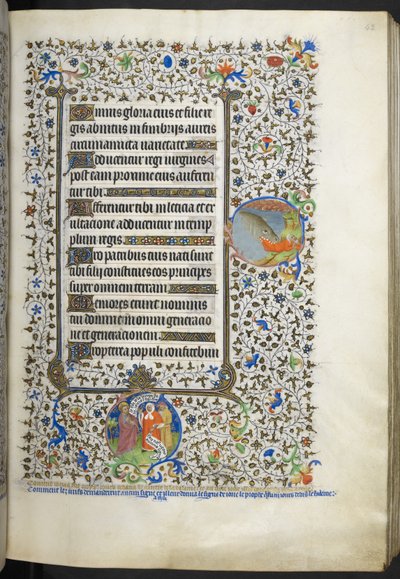 Omnis gloria eius et filie re
gis abintus in fimbrijs aureis
circumamicta varietate
Adducentur regi virgines
post eam proxime eius afferen
tur tibi
Afferentur tibi in leticia et ex
ultacione adducentur in temp
plum regis
Pro patribus tuis nati sunt
tibi filij constitues eos principes
super omnem terram
Memores erunt nominis
tui domine in omni generacio
ne et generacionem
Propterea populi confitebun
Comment les iuifs demanderent aucun signe et il leur donna le signe de ione le prophe